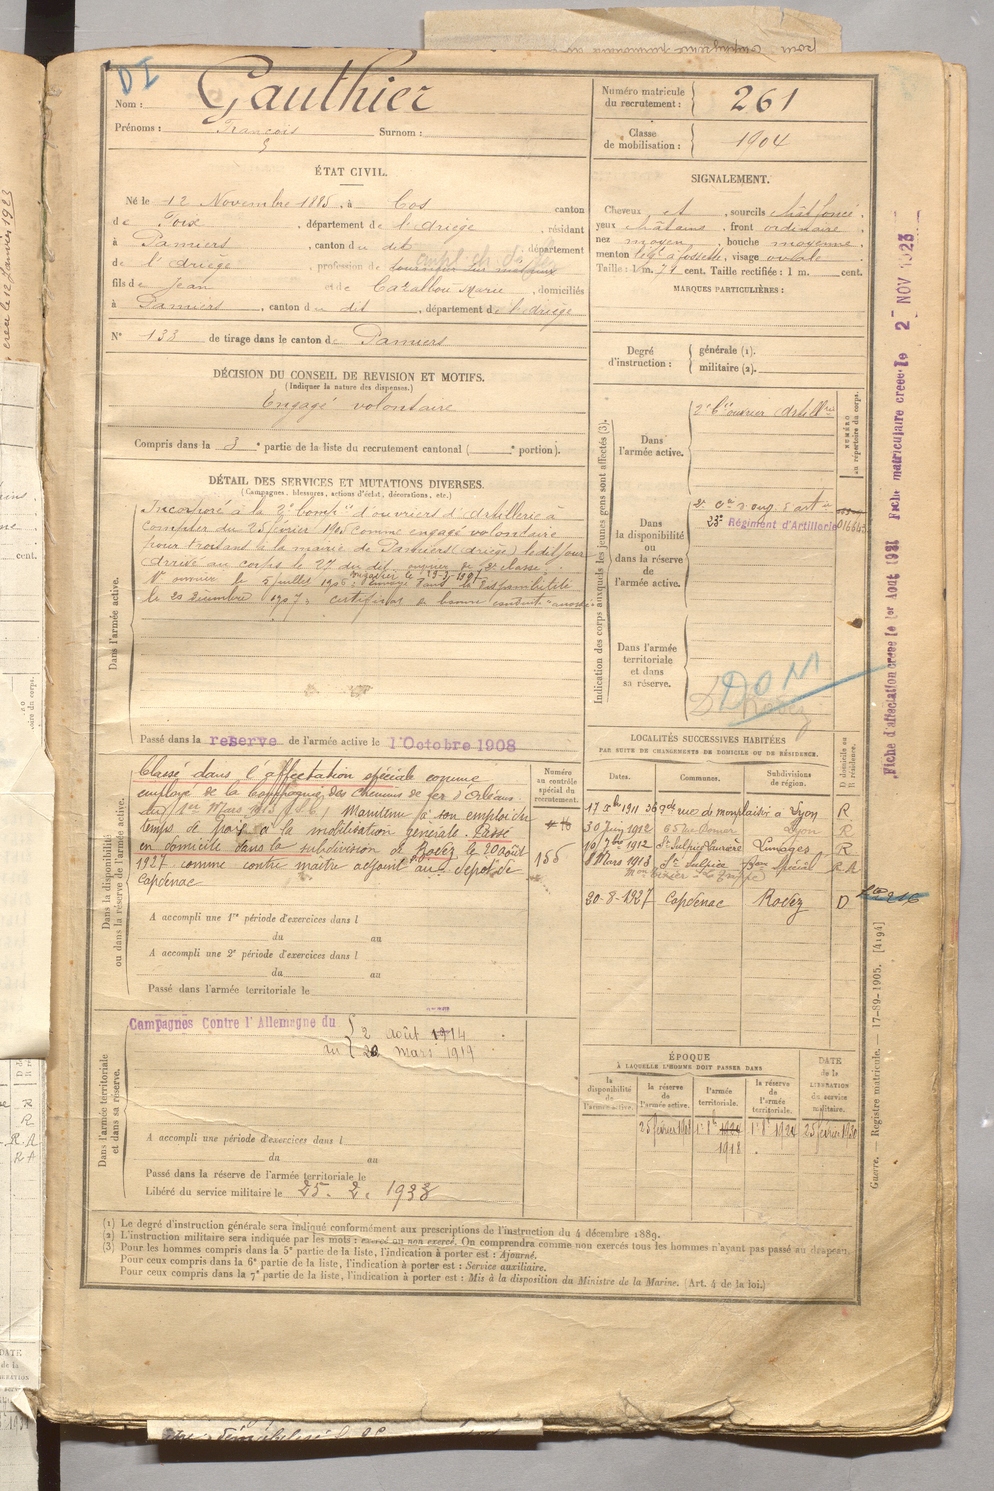 DI
Nom : Gauthier
Prénoms : François Surnom :
Numéro matricule du recrutement : 261
Classe de mobilisation : 1904
ÉTAT CIVIL.
Né le 12 Novembre 1885, à Cos canton
de Foix, département de l'Ariège, résidant
à Pamiers, canton du dit, département
de l'Ariège, profession de
fils de Jean et de Cazalbou Marie, domiciliés
à Pamiers, canton du dit, département de l'Ariège
N° 133 de tirage dans le canton de Pamiers
SIGNALEMENT.
Cheveux et, sourcils chât foncé,
yeux châtains, front ordinaire
nez moyen, bouche moyenne,
menton à fossette, visage ovale
Taille : 1 m. 71 cent. Taille rectifiée : 1 m. cent.
MARQUES PARTICULIÈRES :
DÉCISION DU CONSEIL DE REVISION ET MOTIFS.
(Indiquer la nature des dispenses.)
Engagé volontaire
Compris dans la 3e partie de la liste du recrutement cantonal ( e portion).
Degré d'instruction : générale (1).
militaire (2).
DÉTAIL DES SERVICES ET MUTATIONS DIVERSES.
(Campagnes, blessures, actions d'éclat, décorations, etc.)
Dans l'armée active.
Incorporé à la 2e Compie d'ouvriers d'Artillerie à
compter du 25 février 1905 comme engagé volontaire
pour trois ans à la mairie de Pamiers (Ariège) le dit jour
arrivé au corps le 27 du dit. ouvrier de 2e classe.
1er ouvrier le 5 juillet 1906; envoyé dans la disponibilité
le 20 décembre 1907; certificat de bonne conduite accordé
Passé dans la réserve de l'armée active le 1 Octobre 1908
Indication des corps auxquels les jeunes gens sont affectés (3).
NUMÉRO au répertoire du corps.
Dans l'armée active.
2e Cie ouvrier Artillrie
Dans la disponibilité ou dans la réserve de l'armée active.
23e Régiment d'Artillerie
Dans l'armée territoriale et dans sa réserve.
DOM
Rodez
Fiche d'affectation créée le 1er Août 1931 Fiche matriculaire créée le 2 NOV 1923
Dans la disponibilité ou dans la réserve de l'armée active.
Classé dans l'affectation spéciale comme
employé de la Compagnie des Chemins de fer d'Orléans
du 1er Mars 1913 Maintenu à son emploi du
temps de paix à la mobilisation générale. Passé
en domicile dans la subdivision de Rodez le 20 août
1927 comme contre maître adjoint au dépôt de
Capdenac
Numéro au contrôle spécial du recrutement.
155
A accompli une 1re période d'exercices dans l
du au
A accompli une 2e période d'exercices dans l
du au
Passé dans l'armée territoriale le
LOCALITÉS SUCCESSIVES HABITÉES
PAR SUITE DE CHANGEMENTS DE DOMICILE OU DE RÉSIDENCE.
Dates. Communes. Subdivisions de région. D domicile ou R résidence.
17 Xbre 1911 36 rue de monplaisir à Lyon R
30 Juin 1912 Lyon R
10 7bre 1912 St Sulpice Laurière Limoges R
8 Mars 1913 St Sulpice Spécial R.A
20-8-1927 Capdenac Rodez D
Dans l'armée territoriale et dans sa réserve.
Campagnes Contre l'Allemagne du 2 août 1914
au 20 mars 1919
A accompli une période d'exercices dans l
du au
Passé dans la réserve de l'armée territoriale le
Libéré du service militaire le 25. 2. 1933
ÉPOQUE
À LAQUELLE L'HOMME DOIT PASSER DANS
la disponibilité de l'armée active. la réserve de l'armée active. l'armée territoriale. la réserve de l'armée territoriale. DATE de la LIBÉRATION du service militaire.
25 février 1908 1er 8bre 1921 1er 8bre 1924 25 février 1930
1918
Guerre. — Registre matricule. — 17-89-1905. [4194]
(1) Le degré d'instruction générale sera indiqué conformément aux prescriptions de l'instruction du 4 décembre 1889.
(2) L'instruction militaire sera indiquée par les mots : exercé ou non exercé. On comprendra comme non exercés tous les hommes n'ayant pas passé au drapeau.
(3) Pour les hommes compris dans la 5e partie de la liste, l'indication à porter est : Ajourné.
Pour ceux compris dans la 6e partie de la liste, l'indication à porter est : Service auxiliaire.
Pour ceux compris dans la 7e partie de la liste, l'indication à porter est : Mis à la disposition du Ministre de la Marine. (Art. 4 de la loi.)